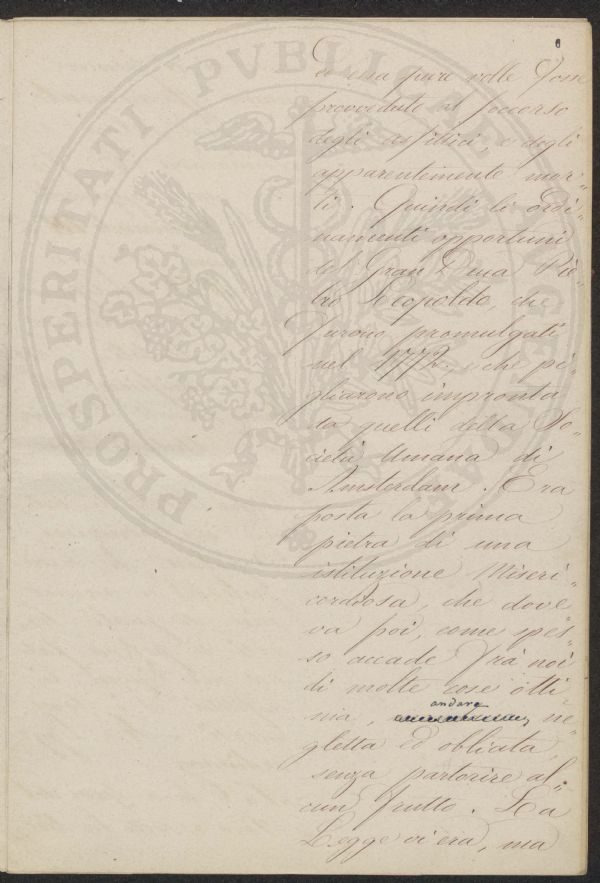 ed essa pure volle fosse
provveduto al soccorso
degli asfittici, e degli
apparentemente mor„
ti. Quindi li ordi„
namenti opportuni
del Gran Duca Pie„
tro Leopoldo, che
furono promulgati
nel 1772. e che pi„
gliarono impronta
da quelli della So„
cietà Umana di
Amsterdam. Era
posta la prima
pietra di una
istituzione Miseri„
cordiosa, che dove
va poi, come spes„
so accade frà noi
di molte cose otti
me, andare ne„
gletta ed obliata,
senza partorire al„
cun frutto. La
Legge vi era, ma
PROSPERITATI PVBLICAE